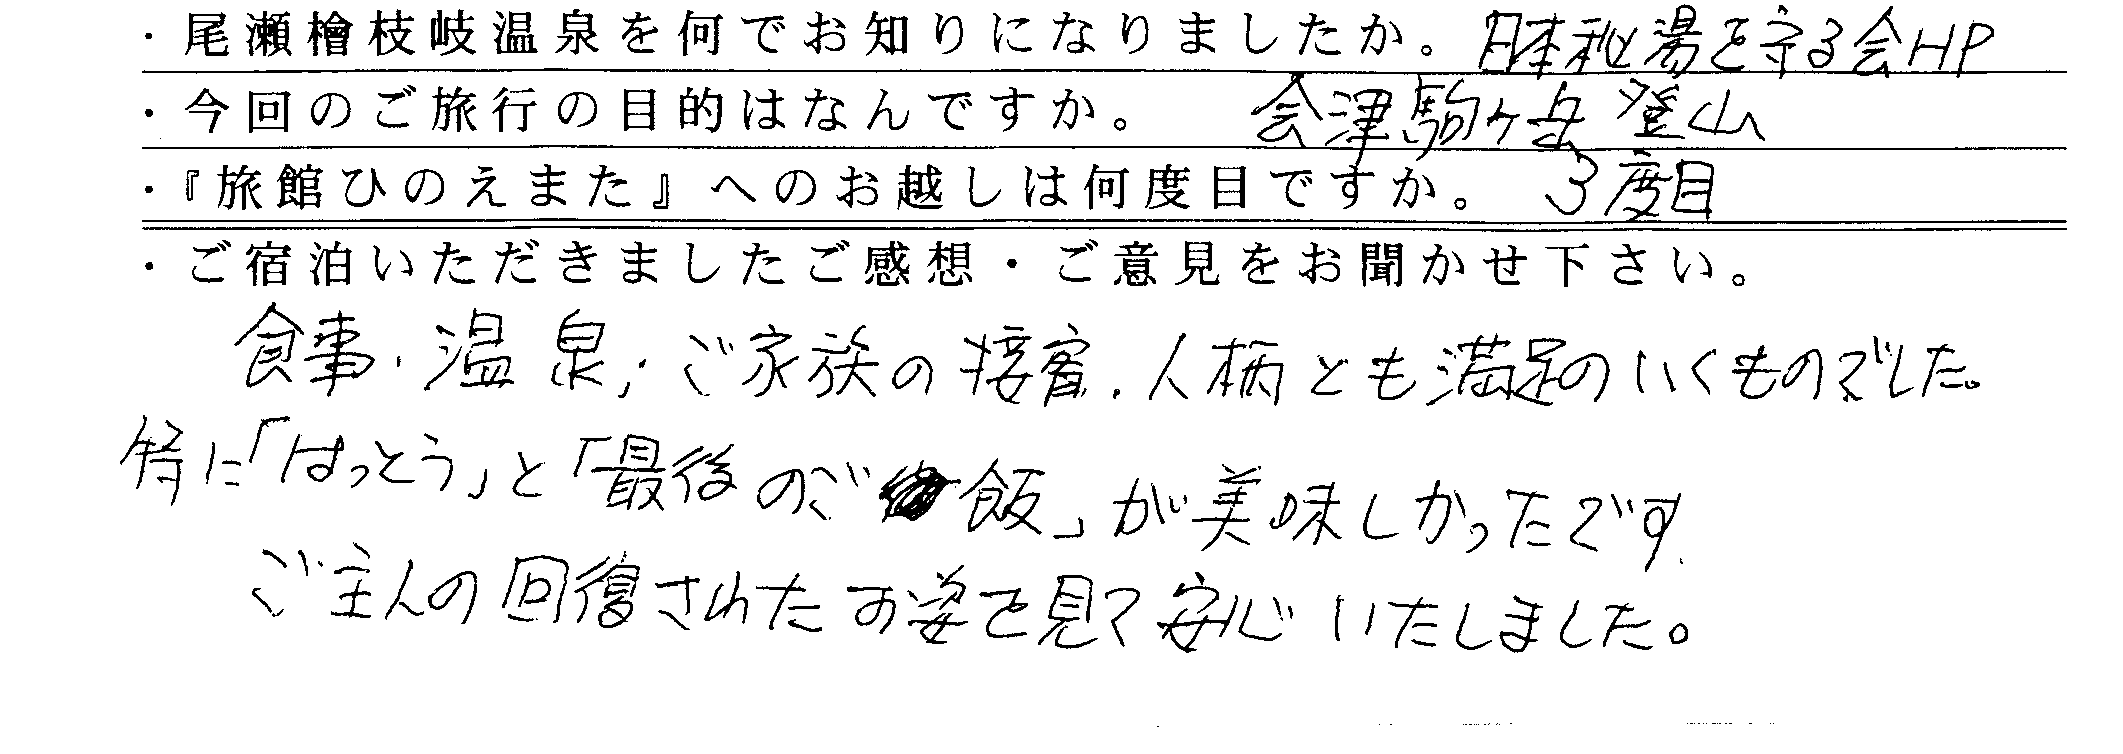 ・尾瀬檜枝岐温泉を何でお知りになりましたか。日本秘湯を守る会HP
・今回のご旅行の目的はなんですか。 会津駒ヶ岳登山
・『旅館ひのえまた』へのお越しは何度目ですか。 3度目
・ご宿泊いただきましたご感想・ご意見をお聞かせ下さい。
食事・温泉・ご家族の接客、人柄とも満足のいくものでした。
特に「はっとう」と「最後のご飯」が美味しかったです
ご主人の回復されたお姿を見て安心いたしました。